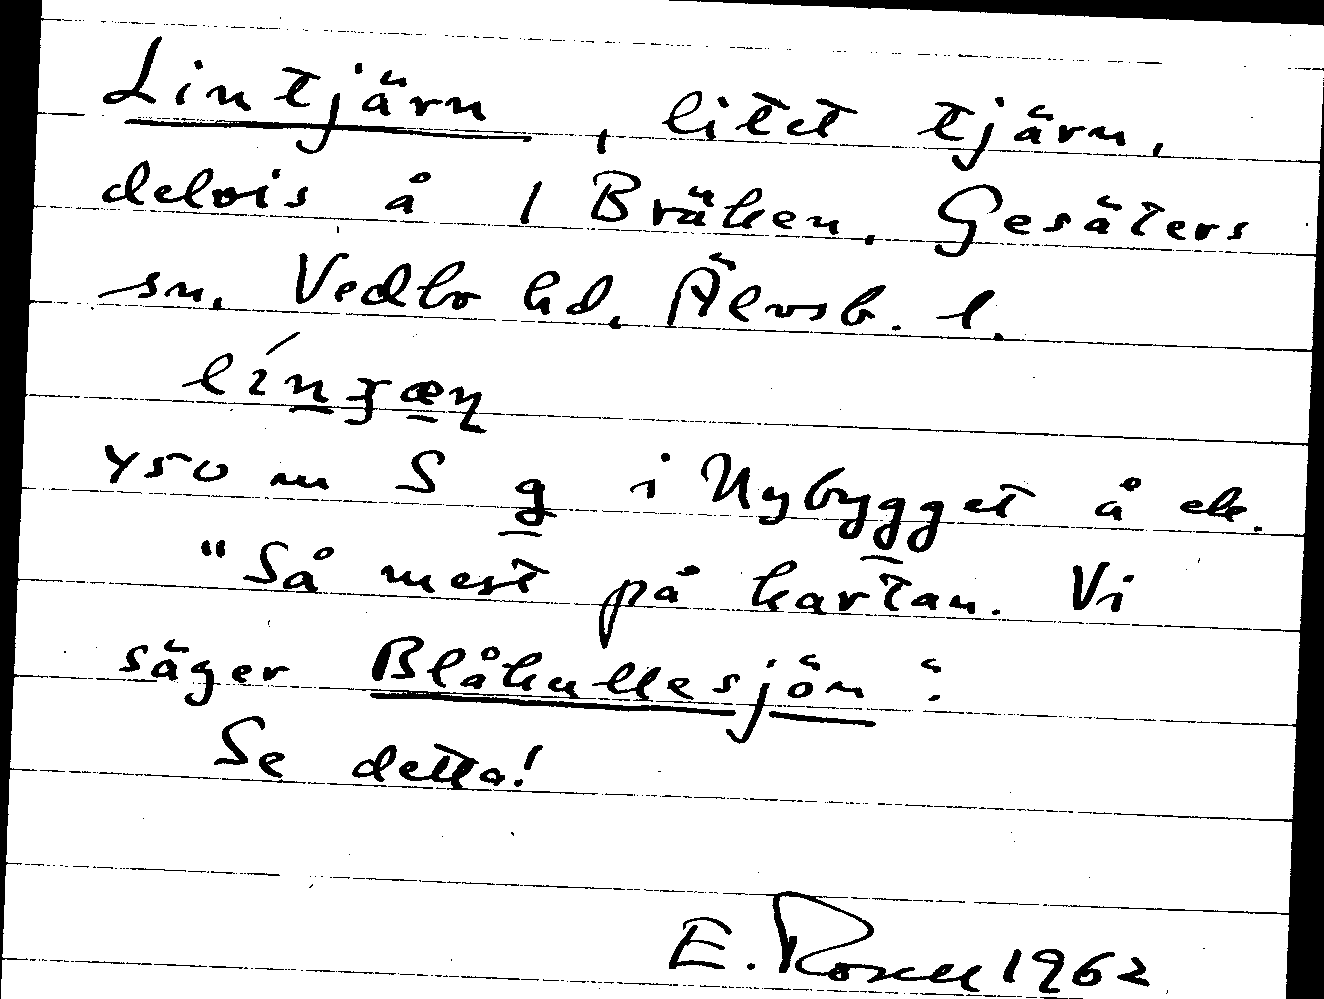 Lintjärn, litet tjärn,
delvis å 1 Bräken. Gesäters
sn. Vedbo hd. Älvsb. l.
450 m S g i Nybygget å ek.
"Så mest på kartan. Vi
säger Blåkullesjön".
Se detta!
E. Rosell 1962